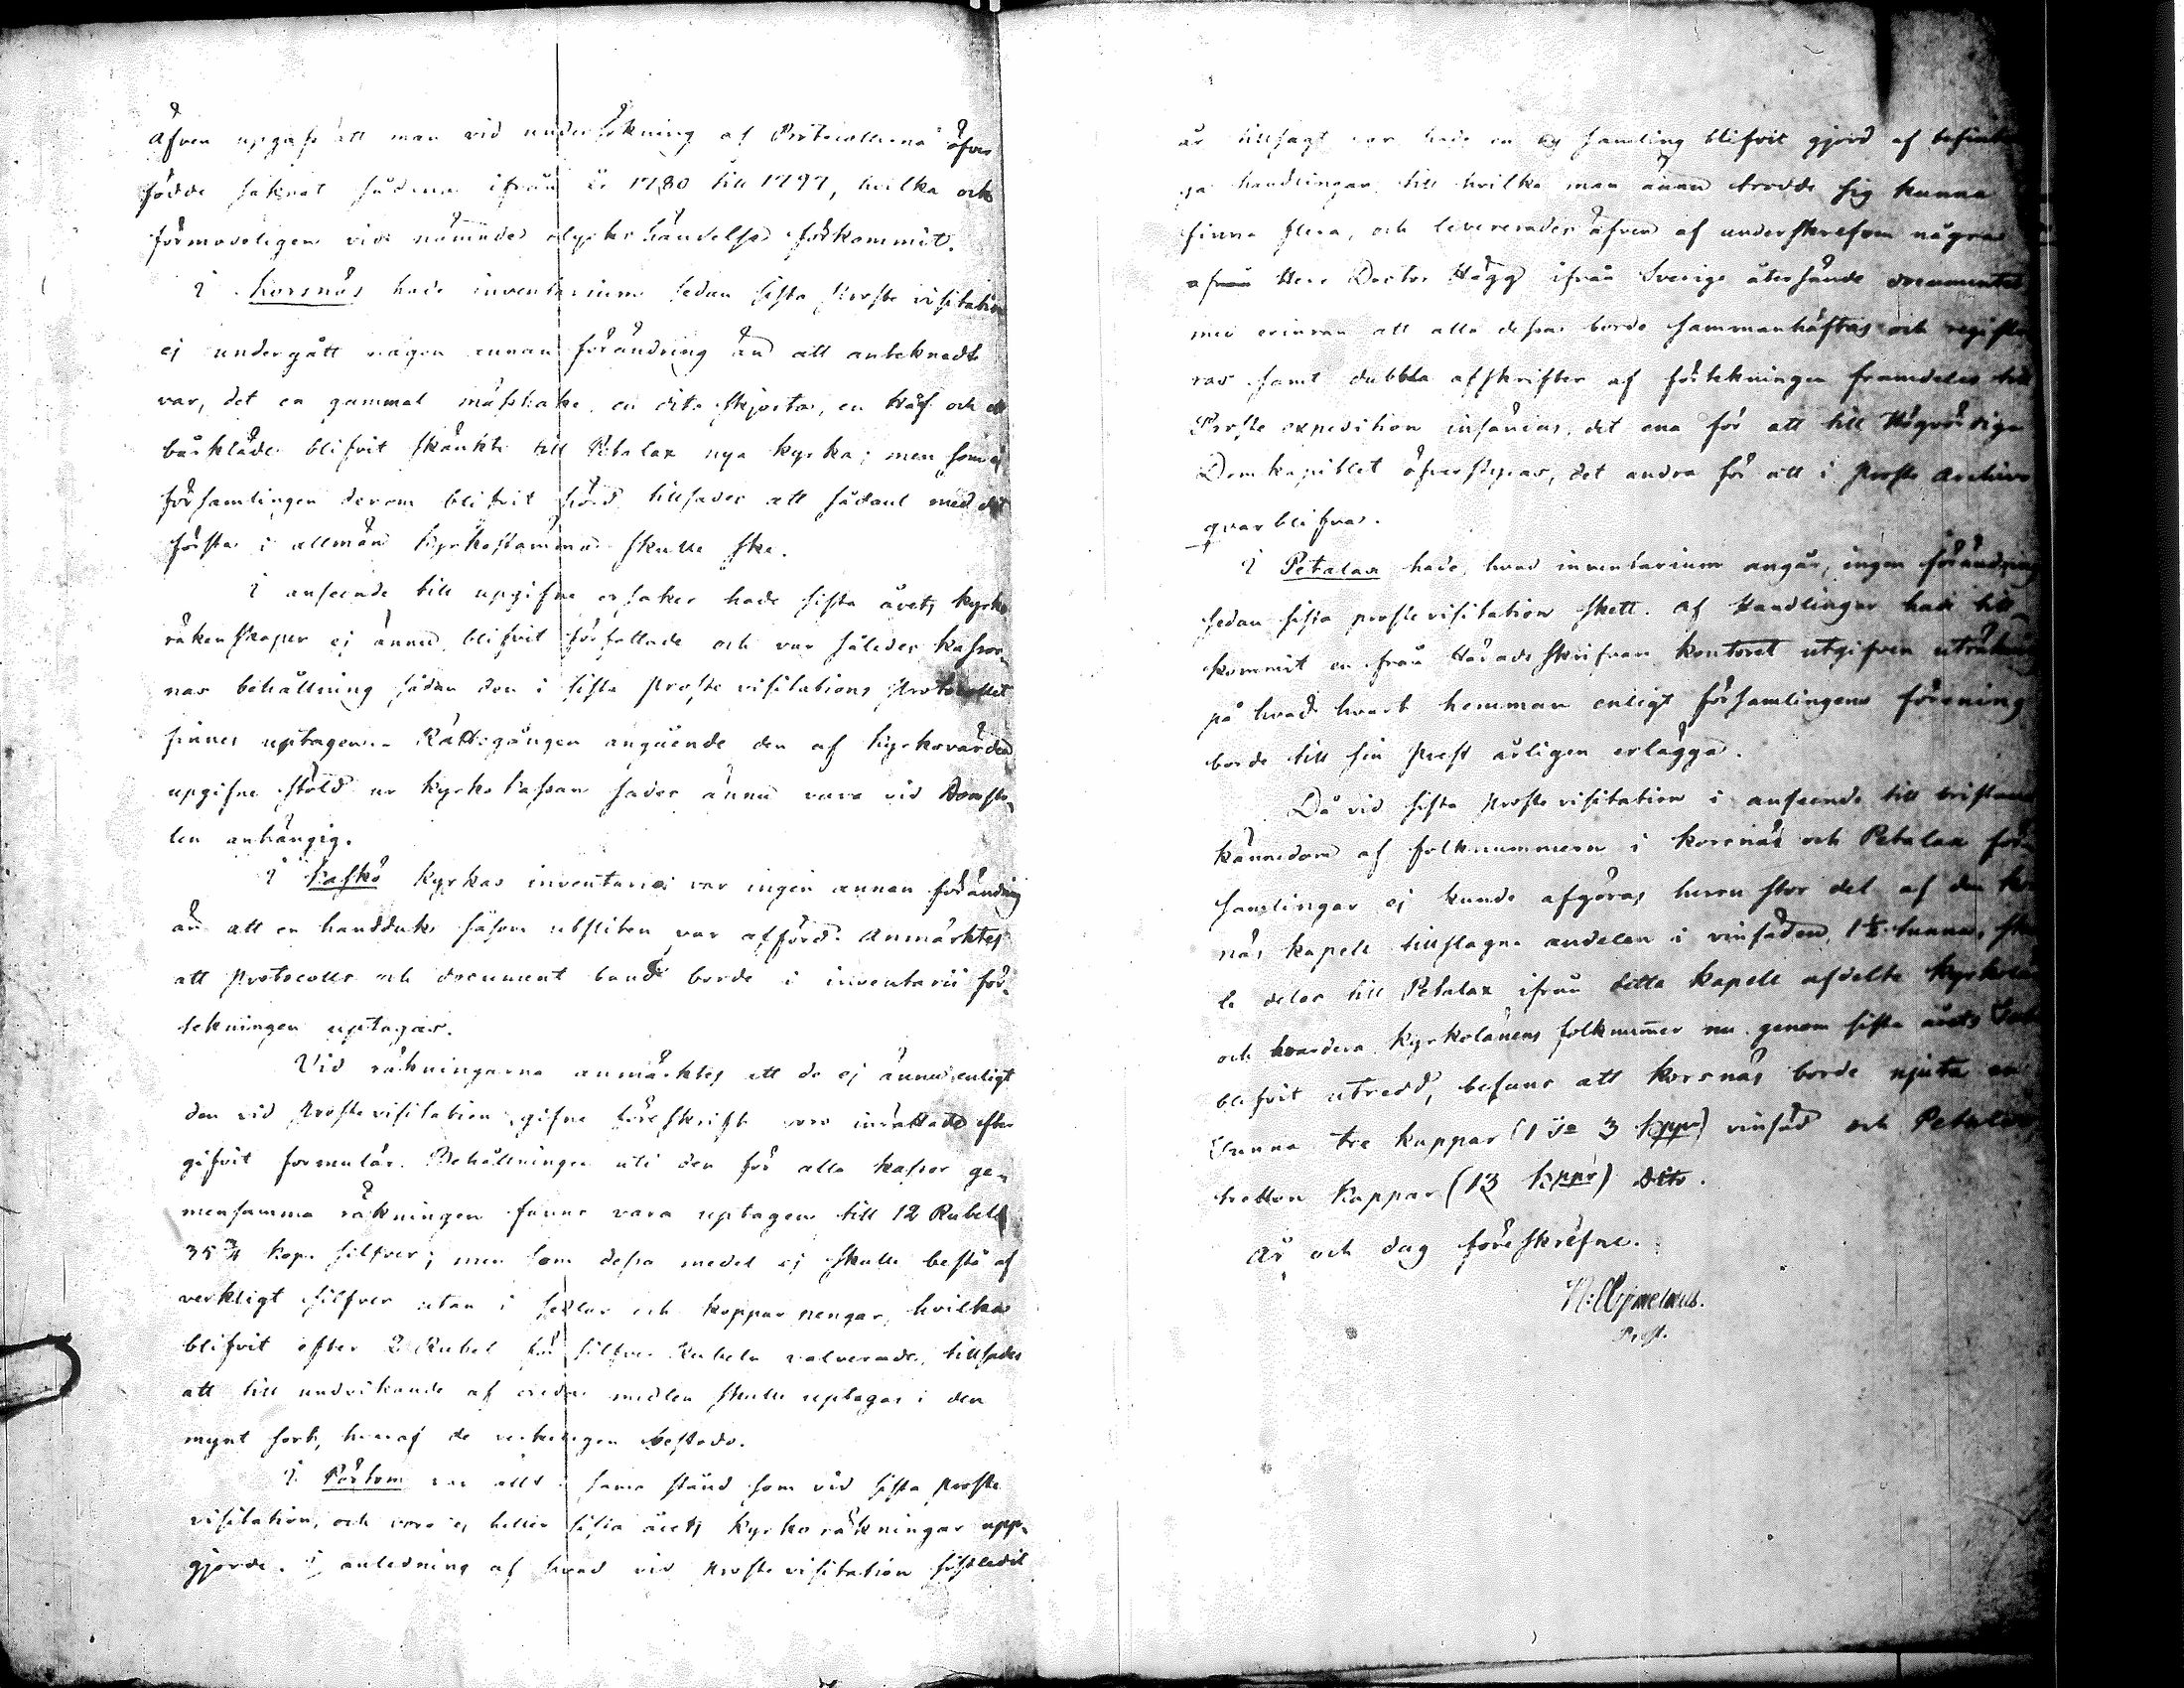 Äfven upgafs att man vid undersökning af Protocollerna äfven
födde saknat sådana ifrån år 1780 till 1797, hvilka ock
förmodeligen vid nämnde olyckshändelse förkommit.
I Korsnäs hade inventarium sedan sista Proste visitation
ej undergått någon annan förändring än att anteknadt
var, det en gammal mässhake, en dito skjorta, en Håf och ett
bårkläde blifvit skänkte till Petalax nya kyrka; men som ej
församlingen derom blifvit hörd tillsades att sådant med det
första i allmän kyrkostämma skulle ske.
I anseende till upgifne orsaker hade sista årets kyrko
räkenskaper ej ännu blifvit författade och var således kassor-
nas behållning sådan den i sista Proste visitations Protocollet
finnes uptagen. Rättegången angående den af kyrkovärden
upgifne stöld ur kyrko kassan sades ännu vara vid Domsto-
len anhängig.
I Kaskö kyrkas inventarie var ingen annan förändring
än att en handduk såsom utsliten var afförd. Anmärktes
att Protocolls och document band borde i inventarii för-
tekningen uptagas.
Vid räkningarna anmärktes att de ej ännu enligt
den vid Proste visitation gifne föreskrift voro inrättade efter
gifvit formulär. Behållningen uti den för alla kassor ge-
mensamma räkningen fanns vara uptagen till 12 Rubel
35 3/4 kop. silfver; men som dessa medel ej skulle bestå af
verkligt silfver utan i sedlar och koppar pengar, hvilka
blifvit efter 2 Rubel för silfver Rubeln valverade, tillsades
att till undvikande af oreda medlen skulle uptagas i den
mynt sort, hvaraf de verkeligen bestodo.
I Pörtom var allt i sama stånd som vid sista proste
visitation, och voro ej heller sista årets kyrko räkningar upp-
gjorde. I anledning af hvad vid Proste visitation sistledit
år tillsagt var hade en ny samling blifvit gjord af befint
ga handlingar, till hvilka man ännu trodde sig kunna
finna flera, och levererades äfven af underskrefven några
Herr Doctor Hägg ifrån Sverige återsände documenter
med erinran att alla dessa borde sammanhäftas och registe
ras samt dubbla afskrifter af förtekningen framdeles till
Proste expedition insändas, det ena för att till Högvördiga
Domkapitlet öfverstyras, det andra för att i Proste Archivo
qvarblifva.
I Petalax hade, hvad inventarium angår, ingen förändring
sedan sista prostevisitation skett. Af Handlingar hade till-
kommit en från Häradsskrifvare kontoret utgifven uträkning
på hvad hvart hemman enligt församlingens förening
borde till sin Prest årligen erlägga.
Då vid sista Proste visitation i anseende till bristande
kännedom af folknummern i Korsnäs och Petalax för-
samlingar ej kunde afgöras huru stor del af den Kors
näs kapell tillslagne andelen i vinsäden, 1 1/2 tunna, skul
le delas till Petalax ifrån detta kapell afdelte kyrkolän
och hvardera kyrkolänens folknummer nu genom sista årets
blifvit utredd, befans att Korsnäs borde njuta en
Tunna tre kappar (1 Tna 3 kppr) vinsäd och Petalax
tretton Kappar (13 kppr) dito.
År och dag föreskrefne.
Prost.